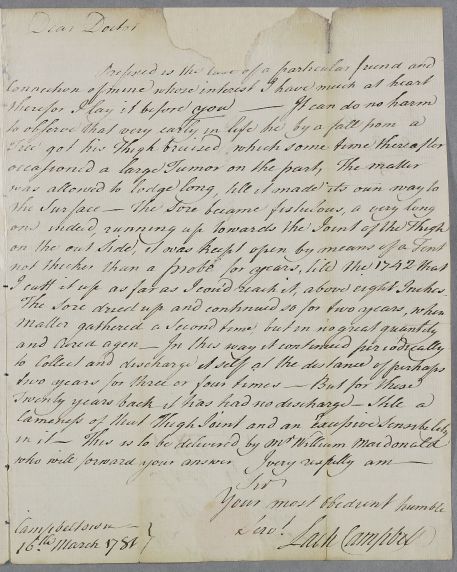 Dear Doctr
Prefixed is the case of a particular friend and
Connection of mine whose interest I have much at heart
therefor I lay it before you — It can do no harm
to observe that very early in life he by a fall from a
Tree got his Thigh bruised which some time thereafter
occasioned a large Tumor on the part, The matter
was allowed to lodge long till it made its own way to
the Surface — the Sore became fistulous, a very long
one indeed, running up towards the Joint of the Thigh
on the out Side, it was kept open by means of a Tent
not thicker than a probe for years, till the 1742 that
I cutt it up as far as I could reach it, above eight Inches
The Sore dried up and continued so for two years, when
Matter gathered a Second time but in no great quantity
and dried agen — In this way it continued periodically
to Collect and discharge it self at the distance of perhaps
two years for three or four times — But for these
Twenty years back it has had no discharge — Still a
Lameness of that Thigh Joint and an Excessive Sensibility
in it — This is to be delivered by Mr William Macdonald
who will forward your answer I very respflly am —
Sir
Your most Obedient humble
Servt
Lach Campbell
Campbeltown
16th March 1781